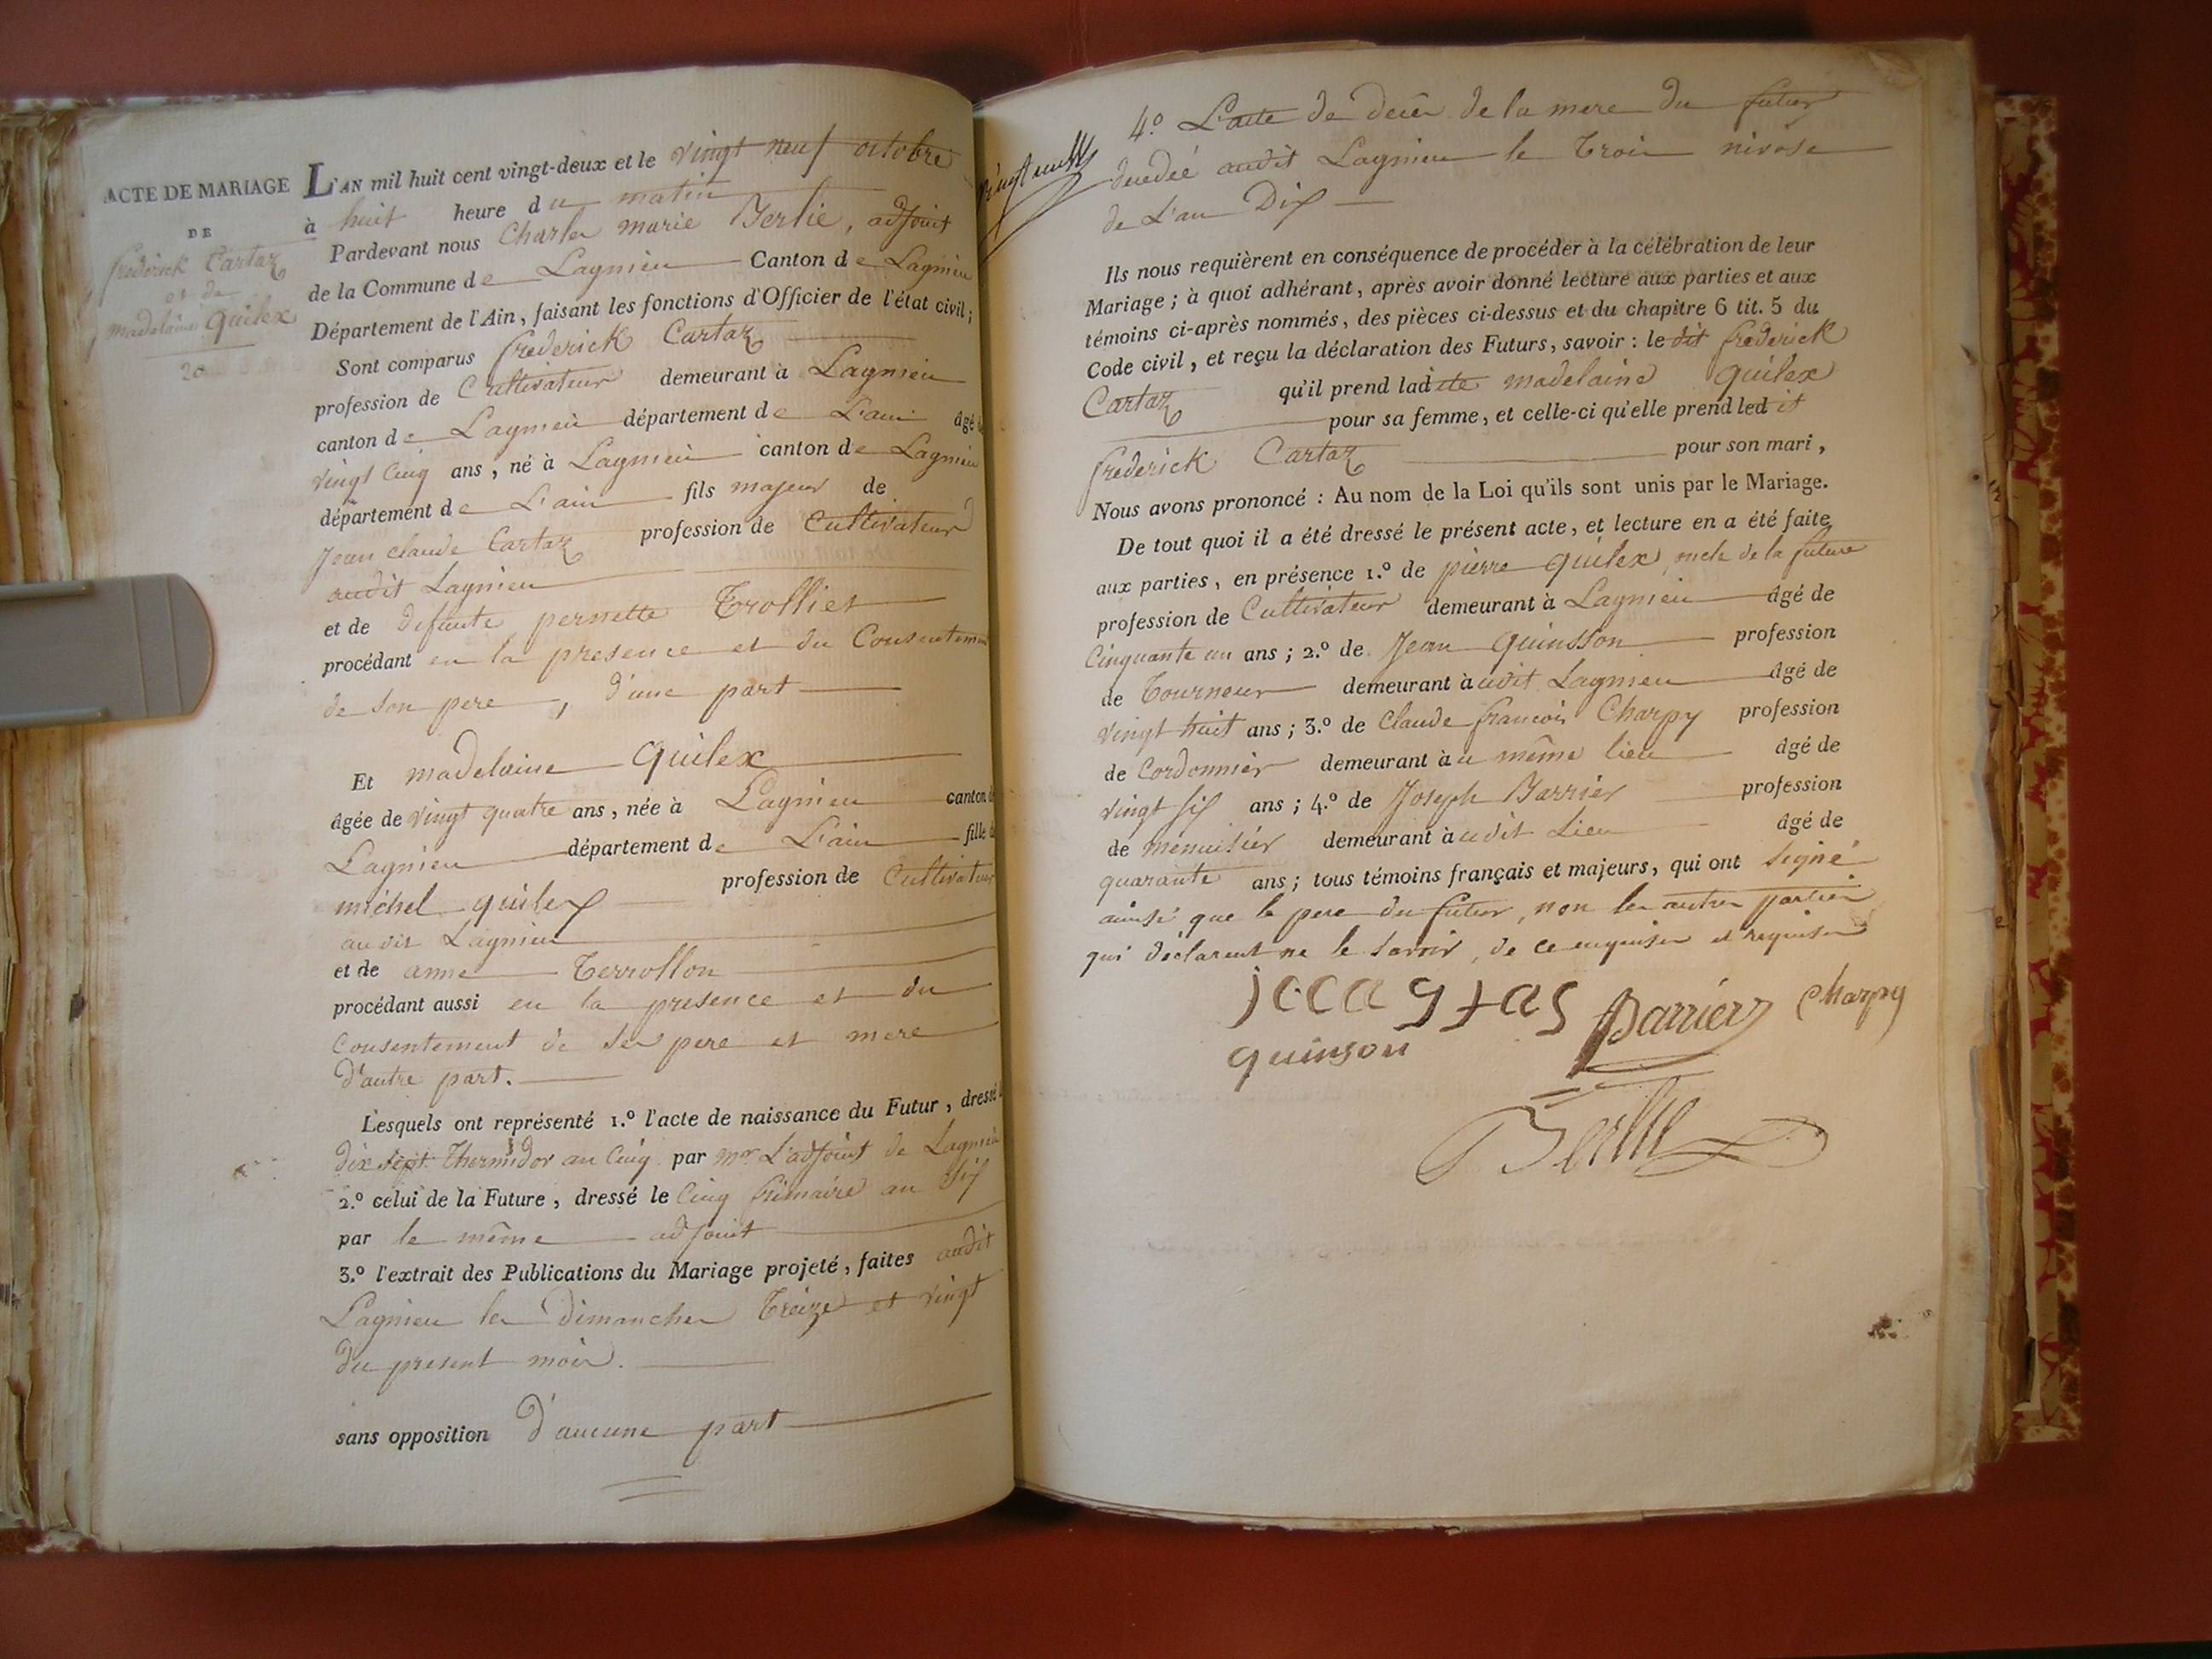 ACTE DE MARIAGE
DE
frederick Cartaz
et de
madelaine Quilex
20
L'AN mil huit cent vingt-deux et le vingt neuf octobre
à huit heure du matin
Pardevant nous Charles marie Berlie, adjoint
de la Commune de Lagnieu Canton de Lagnieu
Département de l'Ain, faisant les fonctions d'Officier de l'état civil;
Sont comparus frederick Cartaz
profession de Cultivateur demeurant à Lagnieu
canton de Lagnieu département de L'ain âgé de
vingt cinq ans, né à Lagnieu canton de Lagnieu
département de L'ain fils majeur de
Jean claude Cartaz profession de Cultivateur
audit Lagnieu
et de defunte pernette Trollier
procédant en la presence et du Consentement
de son pere, d'une part
Et madelaine Quilex
âgée de vingt quatre ans, née à Lagnieu canton de
Lagnieu département de L'ain fille de
michel quilex profession de Cultivateur
audit Lagnieu
et de anne Terrollon
procédant aussi en la presence et du
Consentement de ses pere et mere
d'autre part.
Lesquels ont représenté 1.º l'acte de naissance du Futur, dressé
dix sept Thermidor an Cinq par mr L'adjoint de Lagnieu
2.º celui de la Future, dressé le Cinq frimaire an Six
par le même adjoint
3.º l'extrait des Publications du Mariage projeté, faites audit
Lagnieu les Dimanches Treize et vingt
du present mois.
sans opposition d'aucune part
4.º L'acte de decès de la mere du futur
decedée audit Lagnieu le Trois nivose
de L'an Dix
Ils nous requièrent en conséquence de procéder à la célébration de leur
Mariage; à quoi adhérant, après avoir donné lecture aux parties et aux
témoins ci-après nommés, des pièces ci-dessus et du chapitre 6 tit. 5 du
Code civil, et reçu la déclaration des Futurs, savoir: le dit frederick
Cartaz qu'il prend ladite madelaine Quilex
pour sa femme, et celle-ci qu'elle prend ledit
frederick Cartaz pour son mari,
Nous avons prononcé: Au nom de la Loi qu'ils sont unis par le Mariage.
De tout quoi il a été dressé le présent acte, et lecture en a été faite
aux parties, en présence 1.º de pierre quilex, oncle de la future
profession de Cultivateur demeurant à Lagnieu âgé de
Cinquante un ans; 2.º de Jean Quinsson profession
de Tourneur demeurant audit Lagnieu âgé de
vingt huit ans; 3.º de Claude francois Charpy profession
de Cordonnier demeurant au même lieu âgé de
vingt six ans; 4.º de Joseph Barrier profession
de menuisier demeurant audit Lieu âgé de
quarante ans; tous témoins français et majeurs, qui ont signé
ainsi que le pere du futur, non les autres parties
qui déclarent ne le savoir, de ce enquises et requises
Barrier Charpy
quinson
Berlie